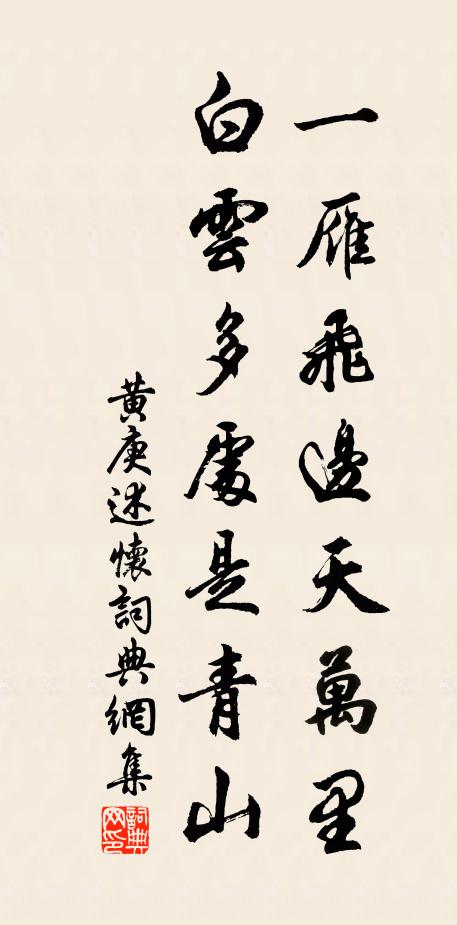 一雁飛邊天萬里
白雲多處是青山
黃庚述懷詞典網集
詞典網印